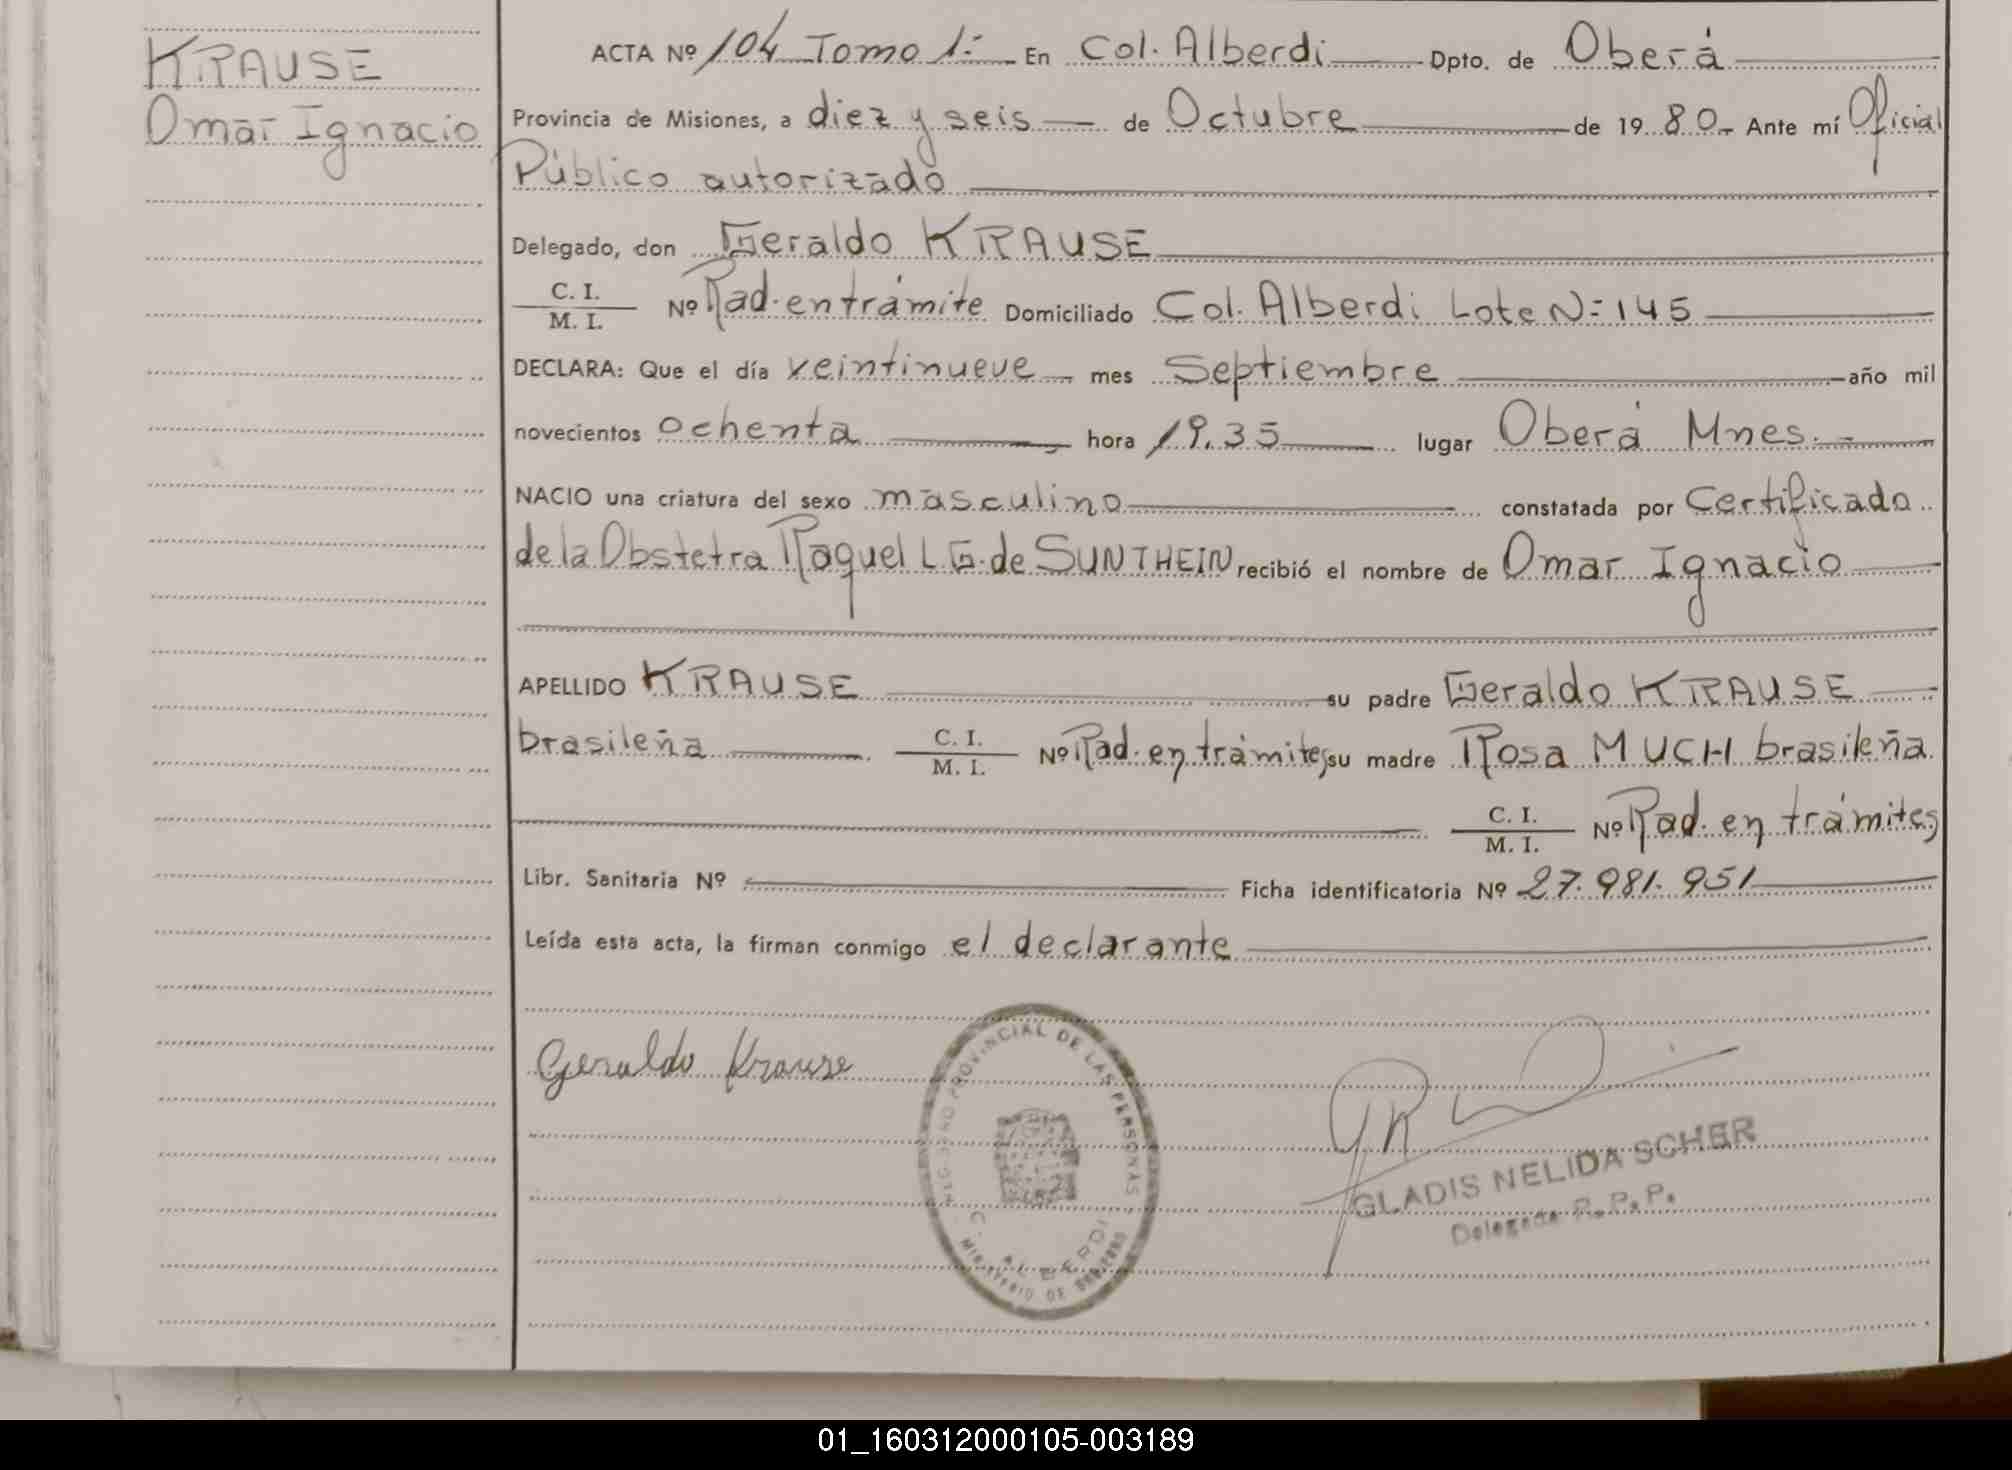 KRAUSE
Omar Ignacio
ACTA Nº 104 Tomo 1:- En Col. Alberdi Dpto. de Oberá
Provincia de Misiones, a diez y seis de Octubre de 19 80.- Ante mí Oficial
Público autorizado
Delegado, don Geraldo KRAUSE
C. I.
M. I. Nº Rad. en trámite Domiciliado Col. Alberdi Lote N: 145
DECLARA: Que el día veintinueve mes Septiembre año mil
novecientos ochenta hora 19.35 lugar Oberá Mnes.-
NACIO una criatura del sexo masculino constatada por Certificado
de la Obstetra Raquel L G. de SUNTHEIN recibió el nombre de Omar Ignacio
APELLIDO KRAUSE su padre Geraldo KRAUSE
brasileña C. I. M. I. Nº Rad. en trámites su madre Rosa MUCH brasileña
C. I. M. I. Nº Rad. en trámites
Libr. Sanitaria Nº Ficha identificatoria Nº 27.981.951
Leída esta acta, la firman conmigo el declarante
Geraldo Krause
PROVINCIAL DE LAS PERSONAS
C. ALBERDI
MINISTERIO DE GOBIERNO
GLADIS NELIDA SCHER
Delegada R. P. P.
01_160312000105-003189